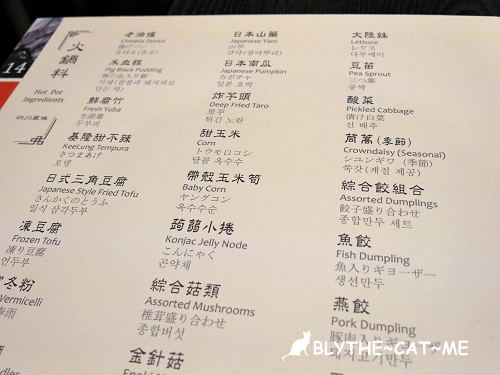 14
火鍋料
Hot Pot
Ingredients
四川風味
老油條
Chinese Donut
揚げパン
米血糕
Pig Black Pudding
鮮腐竹
Fresh Yuba
生湯葉
두부피
基隆甜不辣
KeeLung Tempura
さつまあげ
오뎅
日式三角豆腐
Japanese Style Fried Tofu
さんかくのとうふ
일식 삼각두부
凍豆腐
Frozen Tofu
凍り豆腐
언두부
冬粉
Vermicelli
春雨
日本山藥
Japanese Yam
山芋
日本南瓜
Japanese Pumpkin
カボチャ
일본 호박
炸芋頭
Deep Fried Taro
里芋
튀긴 노란
甜玉米
Corn
トウモロコシ
달콤 옥수수
帶殼玉米筍
Baby Corn
ヤングコン
옥수수순
蒟蒻小捲
Konjac Jelly Node
こんにゃく
곤약채
綜合菇類
Assorted Mushrooms
椎茸盛り合わせ
종합버섯
金針菇
大陸妹
Lettuce
レタス
다루메이
豆苗
Pea Sprout
三つ葉
콩싹
酸菜
Pickled Cabbage
漬け白菜
신 배추
茼蒿(季節)
Crowndaisy (Seasonal)
シユンギワ (季節)
쑥갓(계절 제공)
綜合餃組合
Assorted Dumplings
餃子盛り合わせ
종합만두 세트
魚餃
Fish Dumpling
魚入りギヨーザー
생선만두
燕餃
Pork Dumpling
豚肉入りギヨーザー
돼지고기만두
BLYTHE~CAT~ME